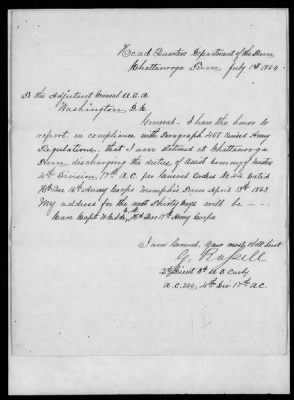 Head Quarters Department of the Tenn
Chattanooga Tenn July 1st 1864
To the Adjutant General U.S.A.
Washington D.C.
General I have the honor to
report, in compliance with Paragraph 468 Revised Army
Regulations, that I am stationed at Chattanooga
Tenn discharging the duties of Assist Comry of Musters
4th Division 17th A.C. per General Orders No 44 Dated
Hd Qrs 16th Army Corps Memphis Tenn April 18th 1863
My address for the next thirty days will be
Care Capt 4th Div 17th Army Corps
I am General Your most obdt Servt
G. Russell
2d Lieut 3d U S Cavly
A.C.M. 4th Div 17th A.C.